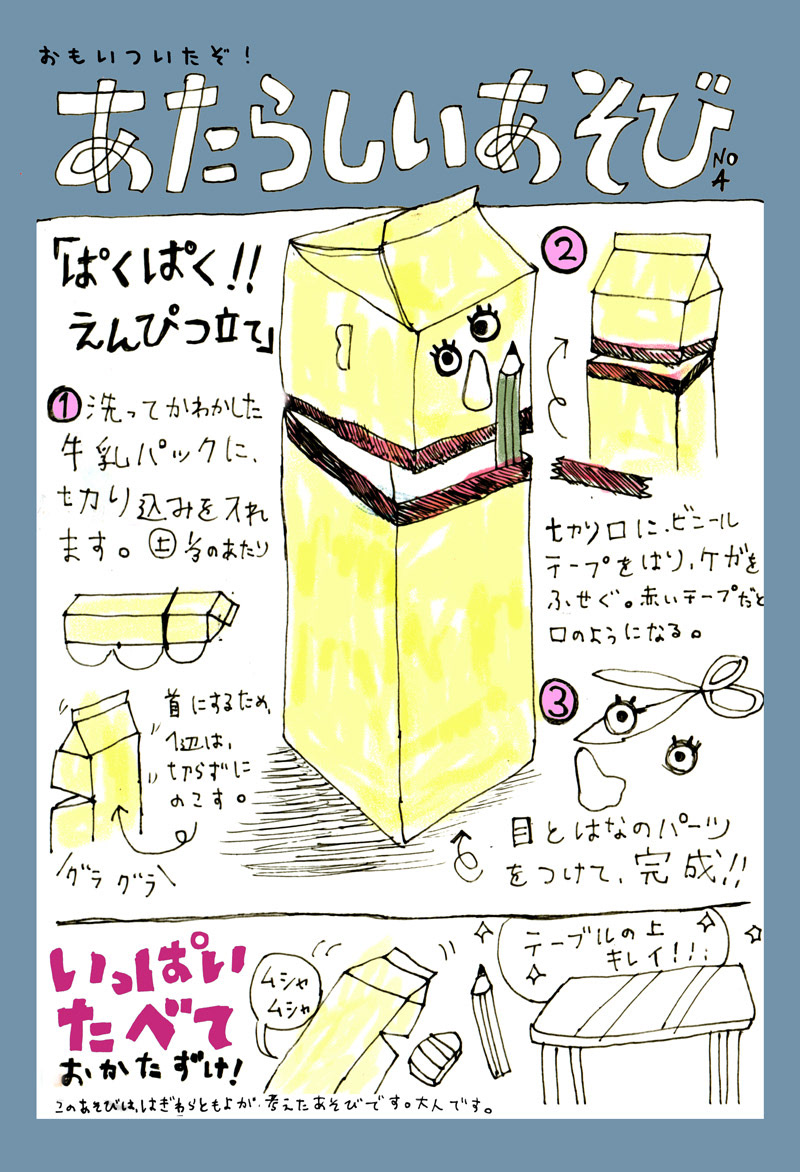 おもいついたぞ!
あたらしいあそび
NO
4
「ぱくぱく!!
えんぴつ立て」
1 洗ってかわかした
牛乳パックに、
切り込みを入れ
ます。㊤⅓のあたり
首にするため、
1辺は、
切らずに
のこす。
グラグラ
2
切り口に、ビニール
テープをはり、ケガを
ふせぐ。赤いテープだと
口のようになる。
3
目とはなのパーツ
をつけて、完成!!
いっぱい
たべて
おかたずけ!
ムシャ
ムシャ
テーブルの上
キレイ!!!
このあそびは、はぎわらともよが、考えたあそびです。大人です。